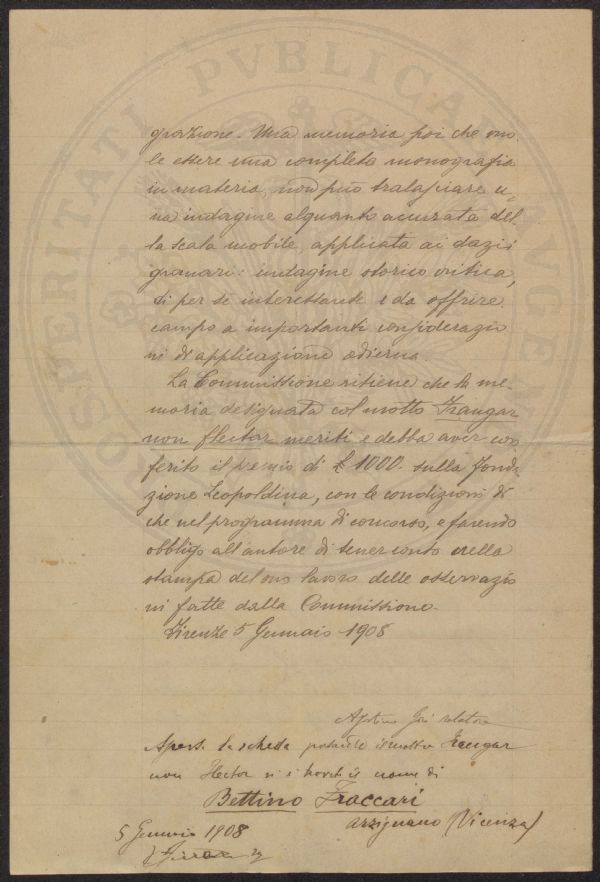 PROSPERITATI PVBLICAE AVGENDAE
grazione. Una memoria poi che vuo
le essere una completa monografia
in materia, non può tralasciare u„
na indagine alquanto accurata del„
la scala mobile, applicata ai dazi
granari: indagine storico critica,
di per sè interessante e da offrire
campo a importanti considerazio
ni di applicazione odierna.
La Commissione ritiene che la me-
moria designata col motto Frangar
non flectar meriti e debba aver con
ferito il premio di £ 1000. sulla Fonda
zione Leopoldina, con le condizioni di
che nel programma di concorso, e facendo
obbligo all'autore di tener conto nella
stampa del suo lavoro delle osservazio
ni fatte dalla Commissione.
Firenze 5 Gennaio 1908
relatore
Aperta la scheda portante il motto Frangar
non flectar vi si trovò il nome di
Bettino Fraccari
Arzignano (Vicenza)
5 Gennaio 1908